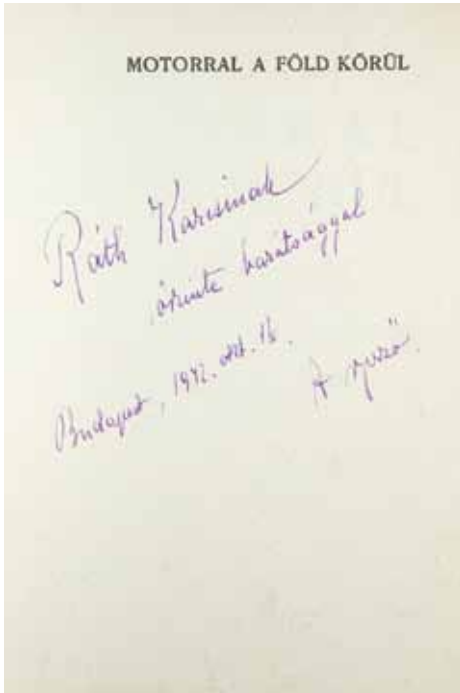 MOTORRAL A FÖLD KÖRÜL
Ráth Karinak
őszinte barátsággal
Budapest, 1942. okt. 16.
A szerző.